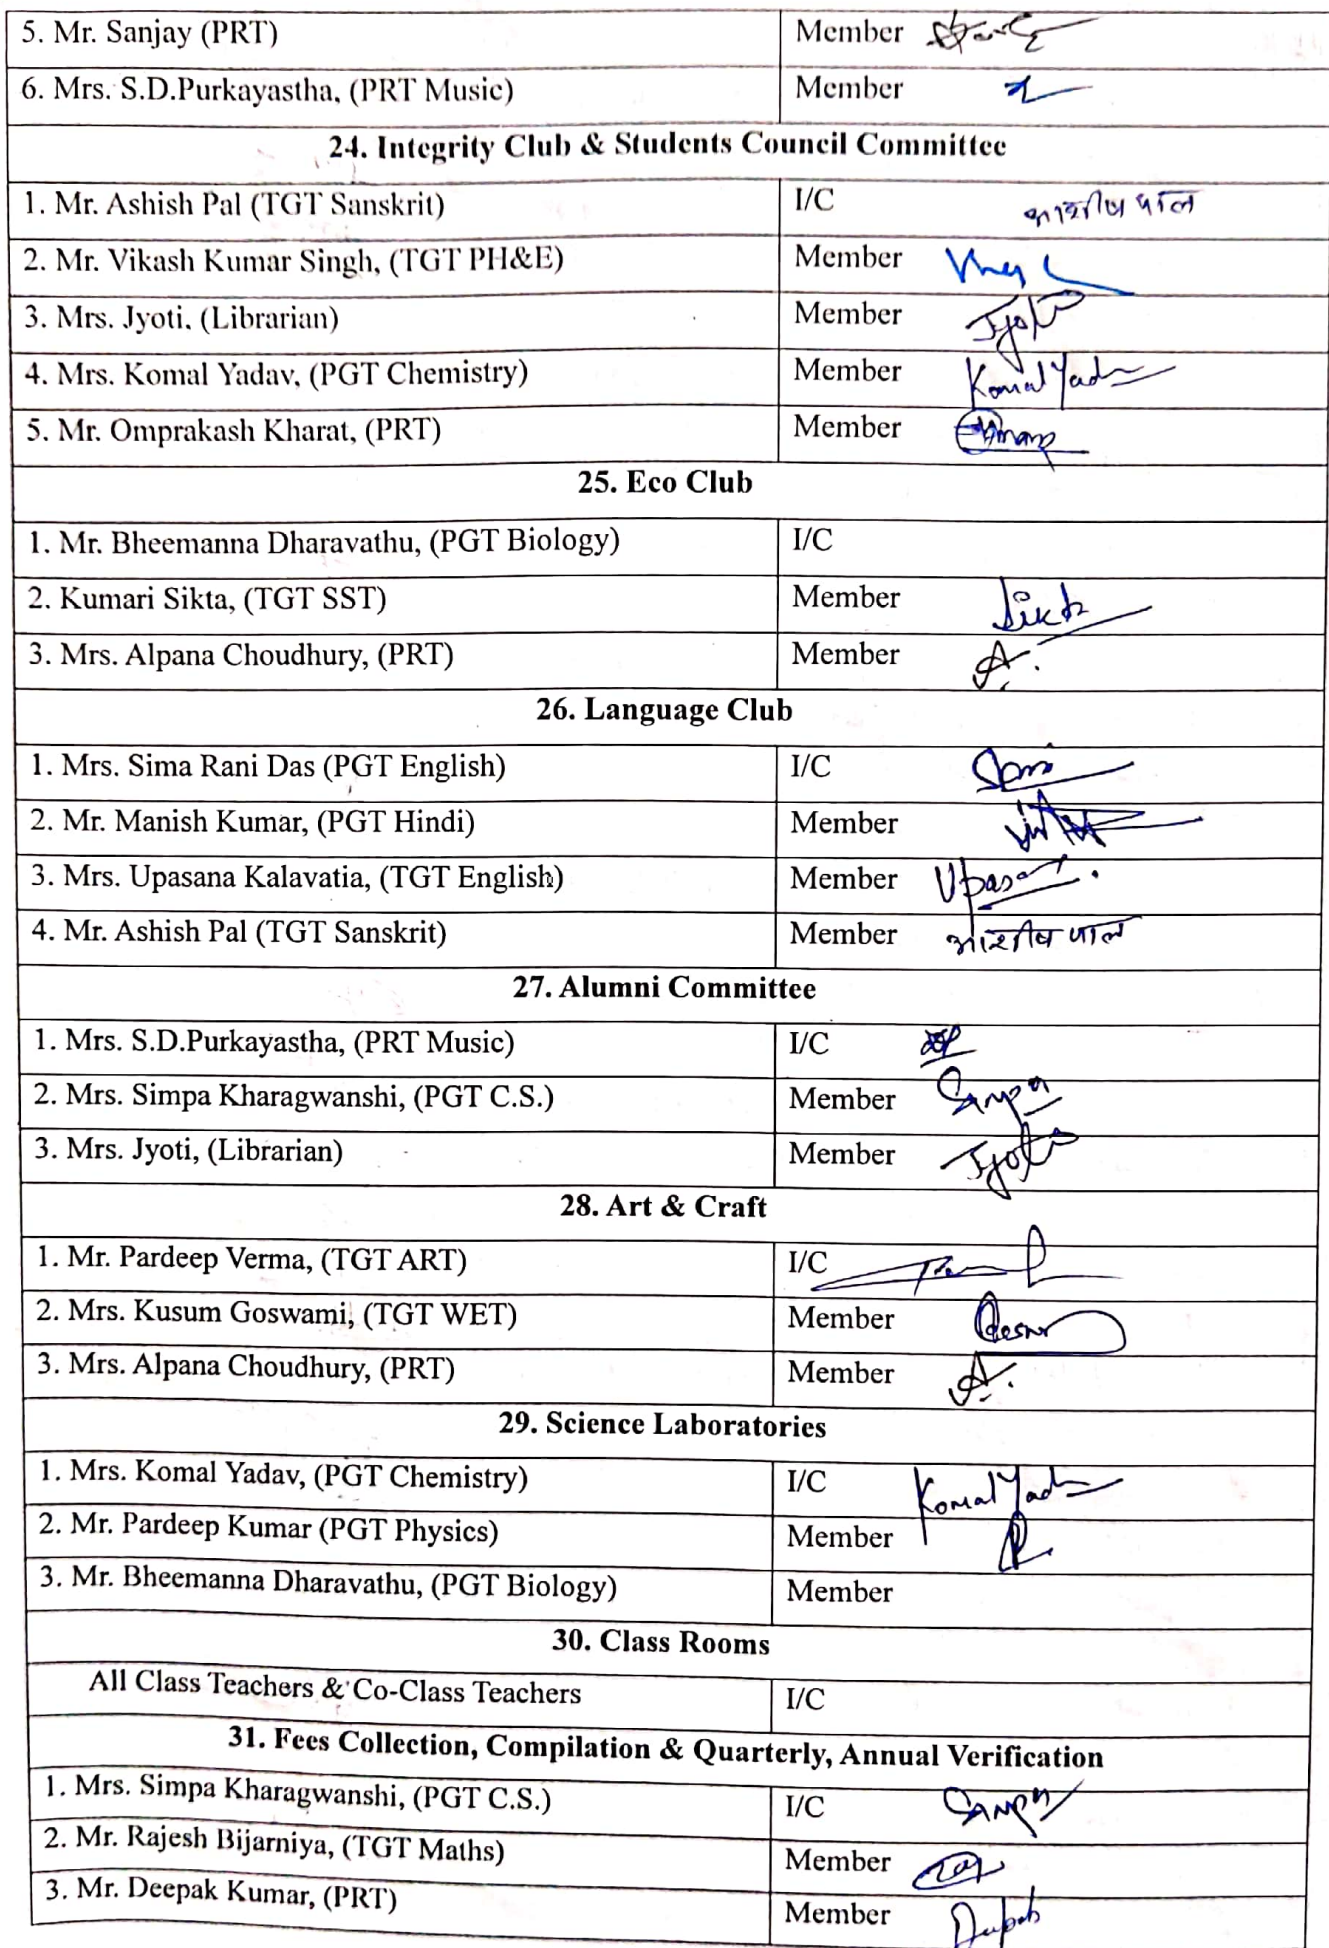 5. Mr. Sanjay (PRT) Member
6. Mrs. S.D.Purkayastha, (PRT Music) Member
24. Integrity Club & Students Council Committee
1. Mr. Ashish Pal (TGT Sanskrit) I/C आशीष पाल
2. Mr. Vikash Kumar Singh, (TGT PH&E) Member
3. Mrs. Jyoti. (Librarian) Member Jyoti
4. Mrs. Komal Yadav, (PGT Chemistry) Member Komal Yadav
5. Mr. Omprakash Kharat, (PRT) Member
25. Eco Club
1. Mr. Bheemanna Dharavathu, (PGT Biology) I/C
2. Kumari Sikta, (TGT SST) Member Sikta
3. Mrs. Alpana Choudhury, (PRT) Member A.
26. Language Club
1. Mrs. Sima Rani Das (PGT English) I/C
2. Mr. Manish Kumar, (PGT Hindi) Member
3. Mrs. Upasana Kalavatia, (TGT English) Member
4. Mr. Ashish Pal (TGT Sanskrit) Member आशीष पाल
27. Alumni Committee
1. Mrs. S.D.Purkayastha, (PRT Music) I/C
2. Mrs. Simpa Kharagwanshi, (PGT C.S.) Member Simpa
3. Mrs. Jyoti, (Librarian) Member Jyoti
28. Art & Craft
1. Mr. Pardeep Verma, (TGT ART) I/C
2. Mrs. Kusum Goswami, (TGT WET) Member
3. Mrs. Alpana Choudhury, (PRT) Member A.
29. Science Laboratories
1. Mrs. Komal Yadav, (PGT Chemistry) I/C Komal Yadav
2. Mr. Pardeep Kumar (PGT Physics) Member
3. Mr. Bheemanna Dharavathu, (PGT Biology) Member
30. Class Rooms
All Class Teachers & Co-Class Teachers I/C
31. Fees Collection, Compilation & Quarterly, Annual Verification
1. Mrs. Simpa Kharagwanshi, (PGT C.S.) I/C Simpa
2. Mr. Rajesh Bijarniya, (TGT Maths) Member
3. Mr. Deepak Kumar, (PRT) Member Deepak